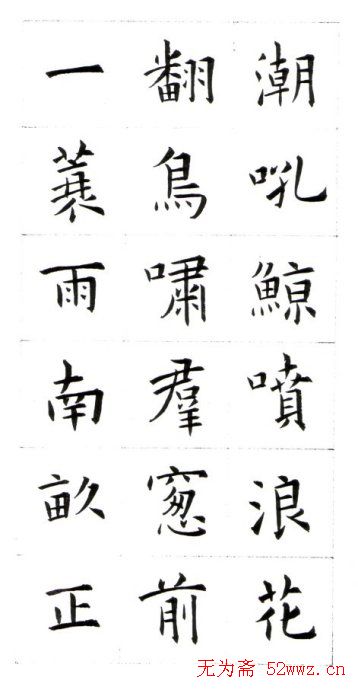 潮吼鯨噴浪花
翻鳥嘯羣窻前
一蓑雨南畝正
无为斋 52wwz.cn